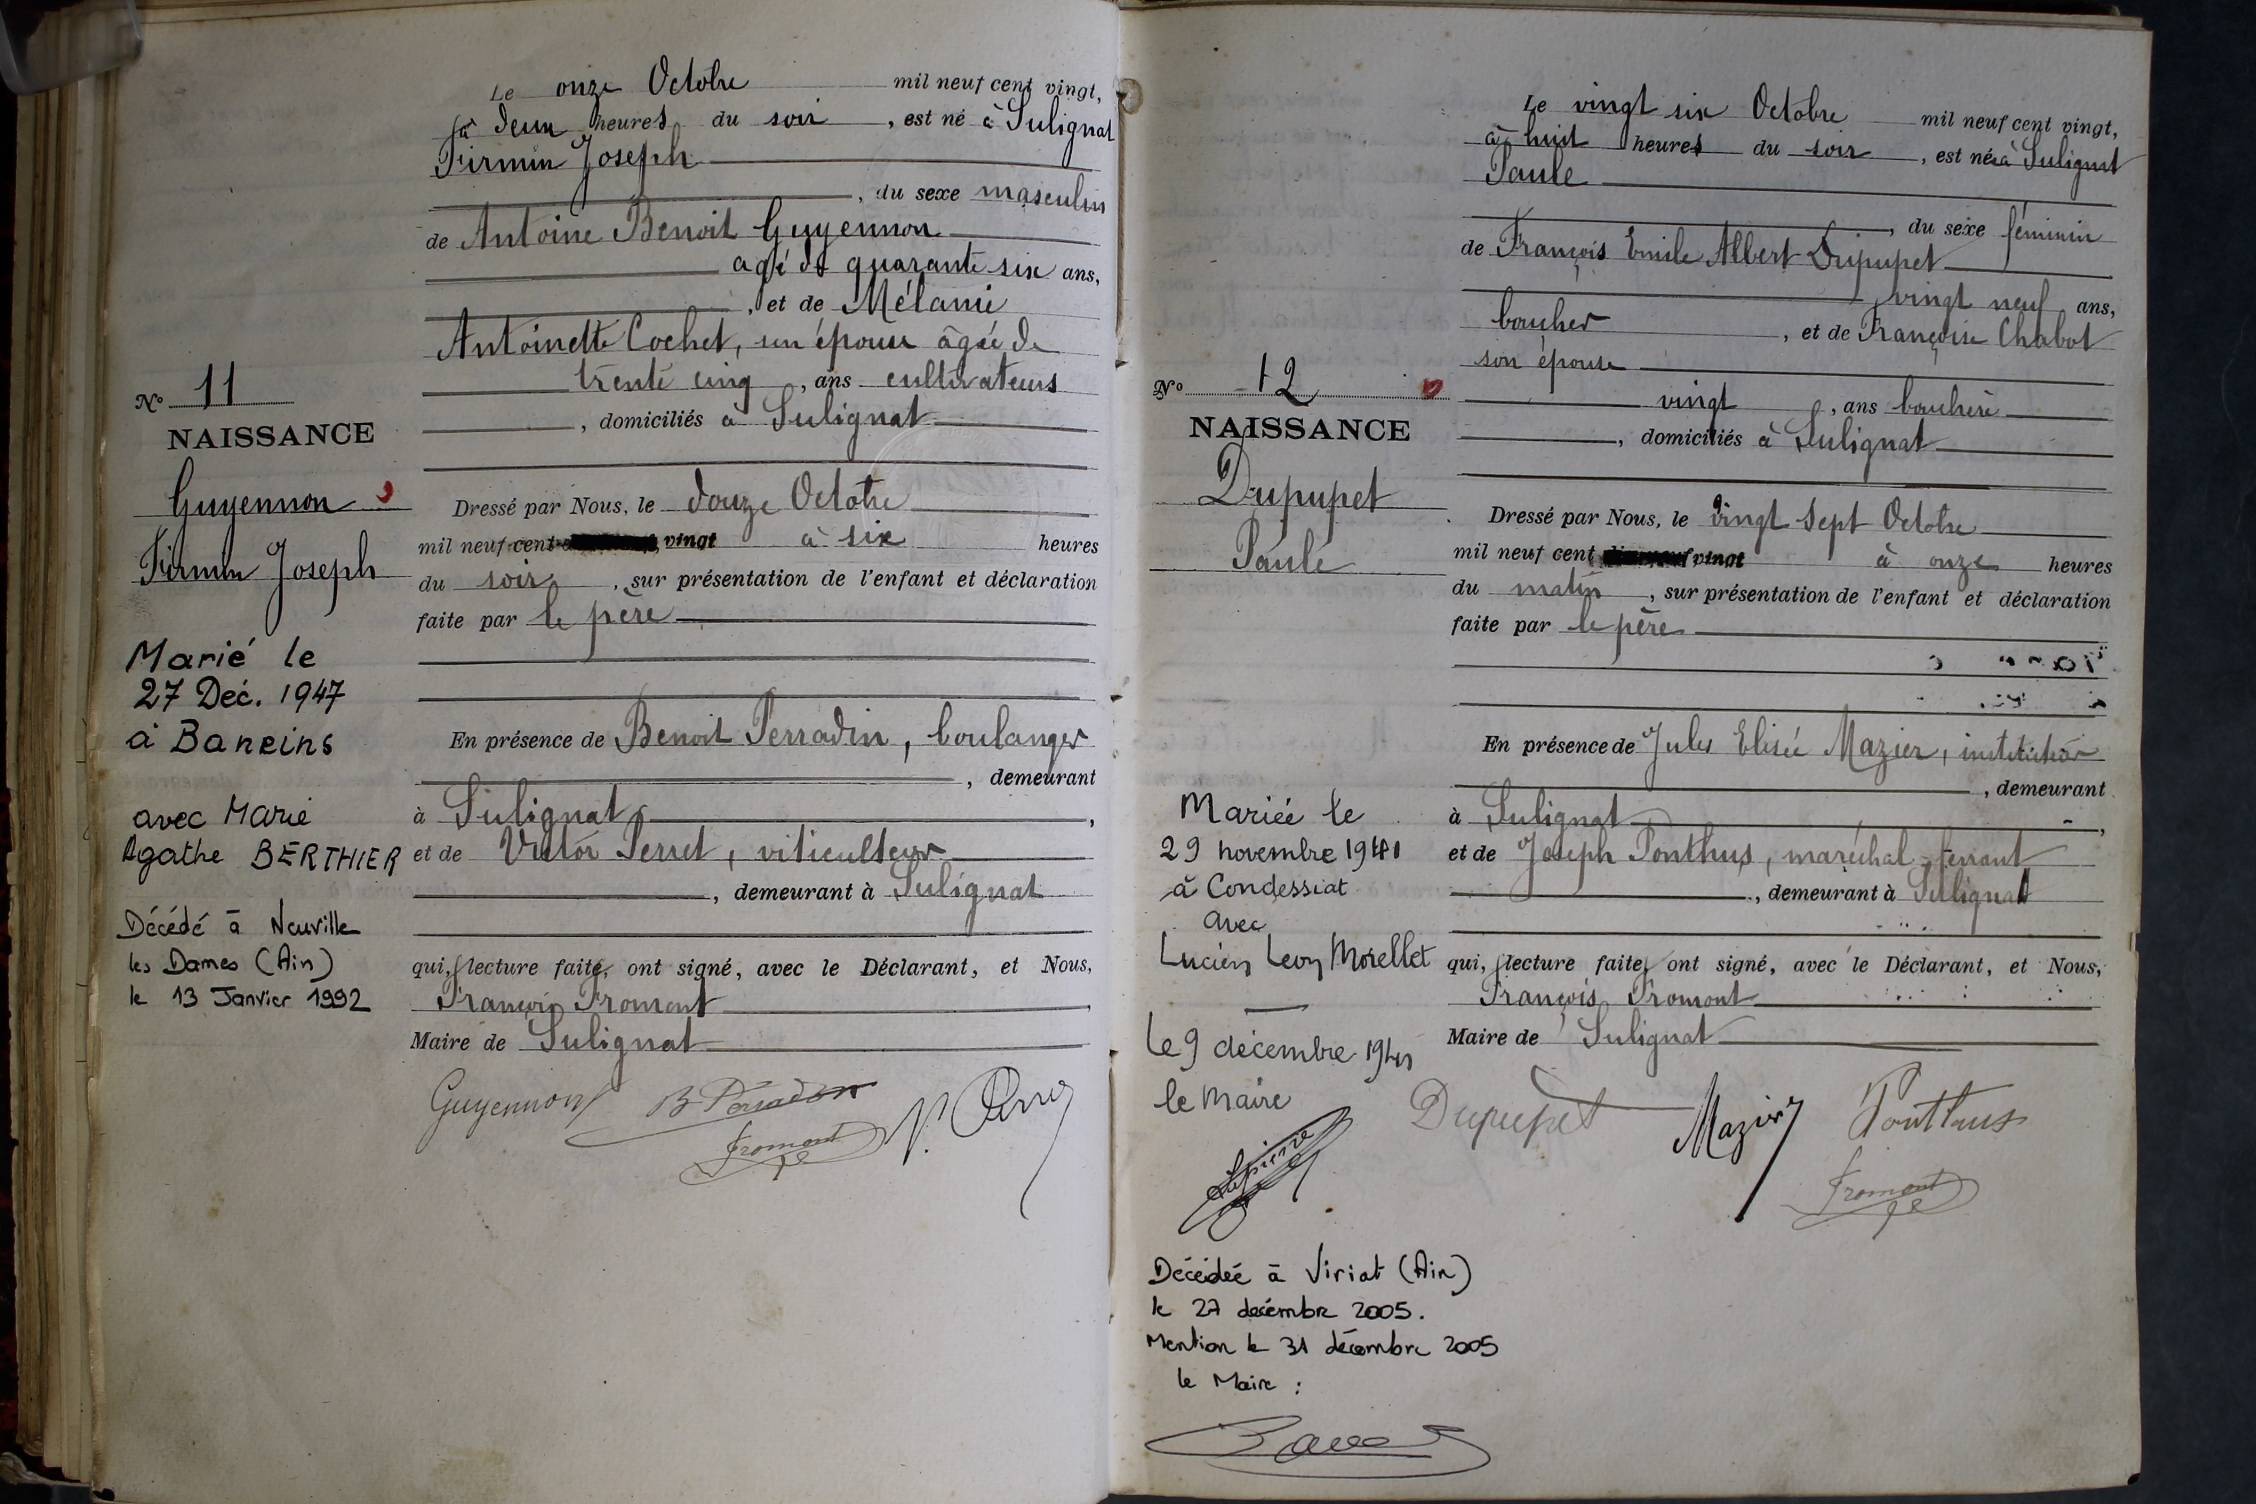 Le onze Octobre mil neuf cent vingt,
à deux heures du soir, est né à Sulignat
Firmin Joseph
, du sexe masculin
de Antoine Benoit Guyennon
agé de quarante six ans,
, et de Mélanie
Antoinette Cochet, son épouse âgée de
trente cinq, ans cultivateurs
, domiciliés à Sulignat
Dressé par Nous, le douze Octobre
mil neuf cent vingt à six heures
du soir, sur présentation de l'enfant et déclaration
faite par le père
En présence de Benoit Perradin, boulanger
, demeurant
à Sulignat,
et de Victor Perret, viticulteur
, demeurant à Sulignat
qui, lecture faite, ont signé, avec le Déclarant, et Nous,
François Fromont
Maire de Sulignat
Guyennon B Perradin
Fromont
No 11
NAISSANCE
Guyennon
Firmin Joseph
Marié le
27 Dec. 1947
à Baneins
avec Marie
Agathe BERTHIER
Décédé à Neuville
les Dames (Ain)
le 13 Janvier 1992
Le vingt six Octobre mil neuf cent vingt,
à huit heures du soir, est née à Sulignat
Paule
, du sexe féminin
de François Emile Albert Dupupet
vingt neuf ans,
boucher, et de Françoise Chabot
son épouse
vingt, ans bouchère
, domiciliés à Sulignat
Dressé par Nous, le vingt sept Octobre
mil neuf cent vingt à onze heures
du matin, sur présentation de l'enfant et déclaration
faite par le père
En présence de Jules Elisée Mazier, instituteur
, demeurant
à Sulignat,
et de Joseph Ponthus, maréchal-ferrant
, demeurant à Sulignat
qui, lecture faite, ont signé, avec le Déclarant, et Nous,
François Fromont
Maire de Sulignat
Dupupet Mazier Ponthus
Fromont
No 12
NAISSANCE
Dupupet
Paule
Mariée le
29 novembre 1941
à Condessiat
avec
Lucien Leon Morellet
Le 9 décembre 1941
le Maire
Décédée à Viriat (Ain)
le 27 décembre 2005.
Mention le 31 décembre 2005
le Maire :